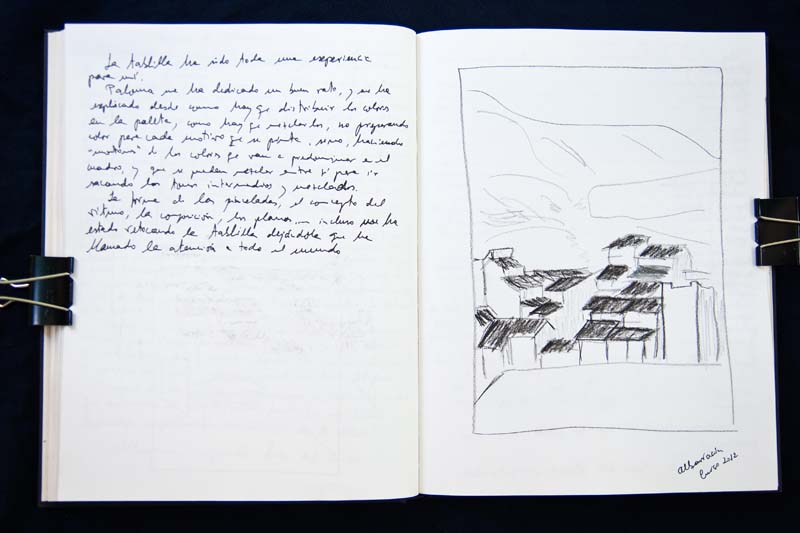 La tablilla ha sido toda una experiencia
para mí.
Paloma me ha dedicado un buen rato, y me ha
explicado desde como hay qe distribuir los colores
en la paleta, como hay qe mezclarlos, no preparando
color para cada motivo qe se pinta, sino, haciendo
"montones" de los colores qe van a predominar en el
cuadro, y que se puedan mezclar entre sí para ir
sacando los tonos intermedios y mezclados.
La forma de las pinceladas, el concepto del
ritmo, la composición, los planos... incluso me ha
estado retocando la tablilla dejándola que ha
llamado la atención a todo el mundo
Albarracín
Curso 2012